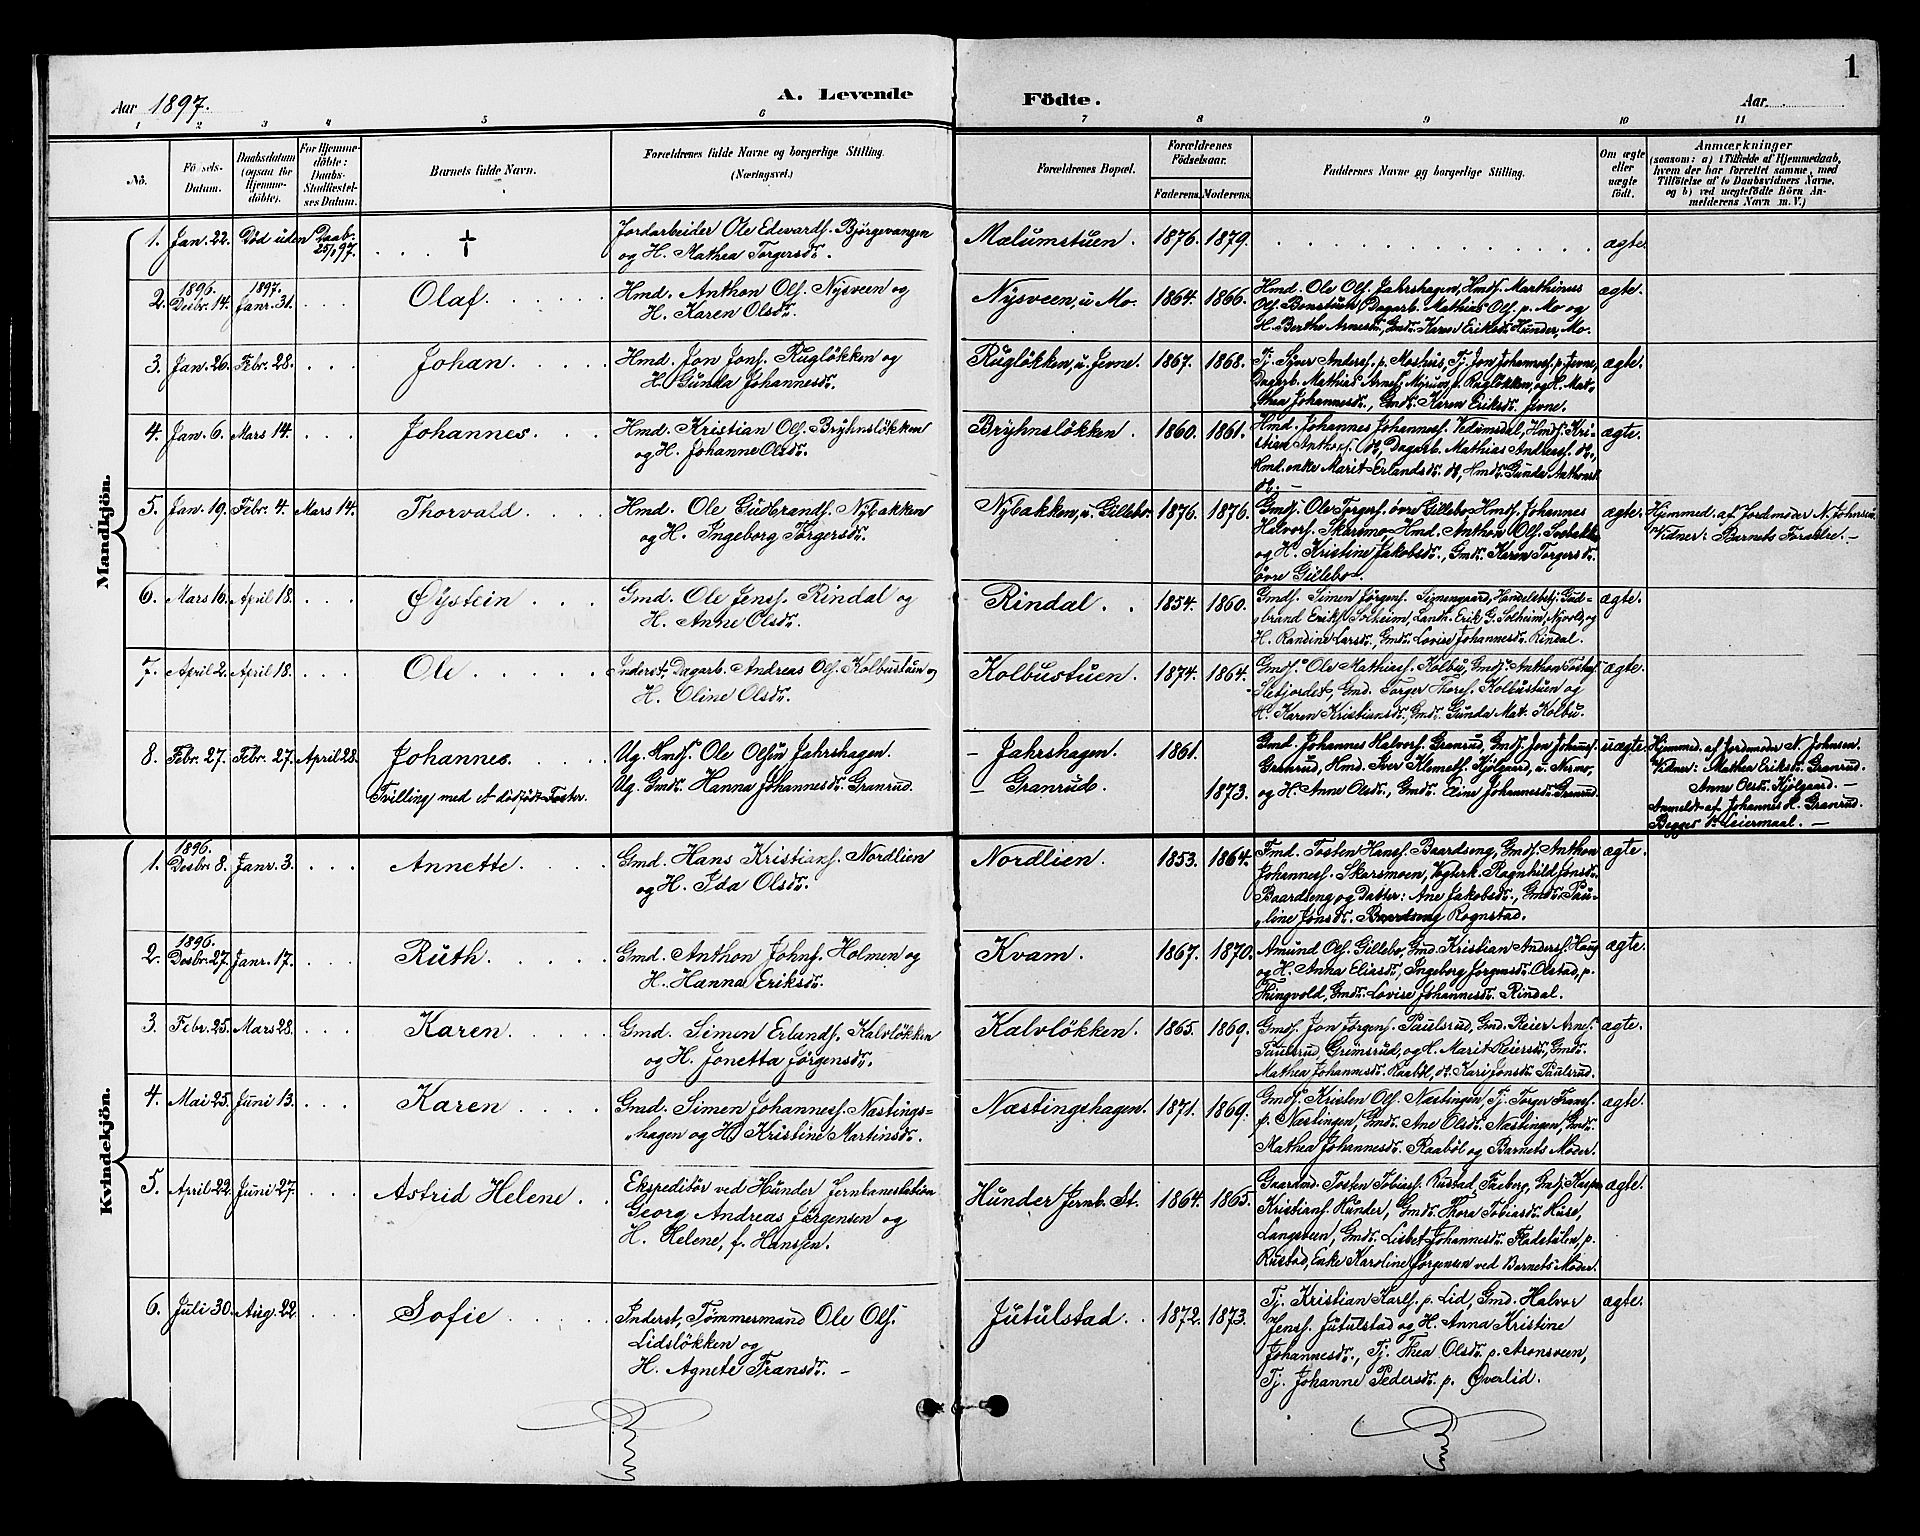 1
Aar 1897.
A. Levende
Födte.
Aar
1 2 3 4 5 6 7 8 9 10 11
No.
Födsels-
Datum.
Daabsdatum
(ogsaa for
Hjemme-
döbte).
For Hjemme-
döbte:
Daabs-
Stadfæstel-
ses Datum.
Barnets fulde Navn.
Forældrenes fulde Navne og borgerlige Stilling.
(Næringsvei.)
Forældrenes Bopæl.
Forældrenes
Födselsaar.
Faderens. Moderens.
Faddernes Navne og borgerlige Stilling.
Om ægte
eller
uægte
födt.
Anmærkninger
(saasom: a) i Tilfælde af Hjemmedaab,
hvem der har forrettet samme, med
Tilföielse af to Daabsvidners Navne,
og b) ved uægtefödte Börn An-
melderens Navn m. V.)
Mandkjön.
1. Jan. 22. Död uden Daab. 25/1 97. †
Jordarbeider Ole Edvards. Bjørgevangen
og H. Mathea Torgersdr.
Mælumstuen. 1876. 1879. ægte.
2. 1896. Desbr. 14. 1897. Janr. 31. Olaf.
Hmd. Anthon Ols. Nysveen og
H. Karen Olsdr.
Nysveen, u. Mo. 1864. 1866.
Hmd. Ole Ols. Jahrshagen, Hmds. Marthinus
Ols. Bonstuen, Dagarb. Mathias Ols. p. Mo og
H. Berthe Arnesdr., Gmdr. Karen Eriksdr. Hunder, Mo.
ægte.
3. Jan. 26. Febr. 28. Johan.
Hmd. Jon Jons. Rugløkken og
H. Gunda Johannesdr.
Rugløkken, u. Jevne. 1867. 1868.
Tj. Syver Anders. p. Moshus, Tj. Jon Johannes. p. Jevne,
Dagarb. Mathias Arnes. Myrum, p. Rugløkken, og H. Mat-
„thea Johannesdr., Gmdr. Karen Eriksdr. Jevne.
ægte.
4. Jan. 6. Mars 14. Johannes.
Hmd. Kristian Ols. Bryhnsløkken
og H. Johanne Olsdr.
Bryhnsløkken. 1860. 1861.
Hmd. Johannes Johannes. Kvamsdal, Hmds. Kri-
stian Anthons. ds, Dagarb. Mathias Anders. ds.,
Hmd. enke Marit Erlandsdr. ds, Hmdr. Gunda Anthonsdr.
ds. –
ægte.
5. Jan. 19. Febr. 4. Mars 14. Thorvald.
Hmd. Ole Gudbrands. Nybakken
og H. Ingeborg Torgersdr.
Nybakken, u. Gillebo. 1876. 1876.
Gmds. Ole Torgers. øvre Gillebo, Hmds. Johannes
Halvors. Skarsmo, Hmd. Anthon Ols.
og H. Kristine Jakobsdr., Gmdr. Karen Torgersdr.
øvre Gillebo.
ægte.
Hjemmed. af Jordmoder N. Johnsen.
Vidner: Barnets Forældre. –
6. Mars 16. April 18. Øystein
Gmd. Ole Jens. Rindal og
H. Anne Olsdr.
Rindal. 1854. 1860.
Gmds. Simen Jørgens. Simengaard, Handelsbetj. Gud-
„brand Eriks. Solheim, Landh. Erik G. Solheim, Nyvold, og
H. Randine Larsdr., Gmdr. Lovise Johannesdr. Rindal.
ægte.
7. April 2. April 18. Ole
Inderst, Dagarb. Andreas Ols. Kolbustuen og
H. Oline Olsdr.
Kolbustuen 1874. 1864.
Gmds. Ole Mathias. Kolbu, Gmds. Anthon Tostens.
Slefjordet, Gmd. Torger Thores. Kolbustuen og
H. Karen Kristiansdr., Gmdr. Gunda Mat. Kolbu.
ægte.
8. Febr. 27. Febr. 27. April 28. Johannes.
Tvilling med et dödfödt Foster.
Ug. Hmds. Ole Olsen Jahrshagen.
Ug. Gmdr. Hanna Johannesdr. Granrud.
– Jahrshagen. 1861.
– Granrud. 1873.
Gmd. Johannes Halvors. Granrud, Gmds. Jon Johans.
Granrud, Hmd. Iver Klemets. Kjølgaard, u. Nermo,
og H. Anne Olsdr., Gmdr. Eline Johannesdr. Granrud.
uægte.
Hjemmed. af Jordmoder N. Johnsen.
Vidner: Mathea Eriksdr. Granrud.
Anne Olsdr. Kjølgaard. –
Anmeldt af Johannes H. Granrud.
Begges 1ste Leiermaal. –
Kvindekjön.
1. 1896. Desbr. 8. Janr. 3. Annette.
Gmd. Hans Kristians. Nordlien
og H. Ida Olsdr.
Nordlien. 1853. 1864.
Fmd. Tosten Hans. Baardseng, Gmds. Anthon
Johannes. Skarsmoen, Ragnhild Jonsdr.
Baardseng og Datter: Ane Jakobsdr., Gmdr. Pau-
„line Jonsdr. Baardseng Rognstad.
ægte.
2. 1896. Desbr. 27. Janr. 17. Ruth.
Gmd. Anthon Johns. Holmen og
H. Hanna Eriksdr.
Kvam. 1867. 1870.
Amund Ols. Gillebo, Gmd. Kristian Anders. Haug
og H. Anna Eliasdr., Ingeborg Jørgensdr. Olstad, p.
Thingvold, Gmdr. Lovise Johannesdr. Rindal.
ægte.
3. Febr. 25. Mars 28. Karen
Gmd. Simen Erlands. Kalvløkken
og H. Jonetta Jørgensdr.
Kalvløkken. 1865. 1869.
Gmds. Jon Jørgens. Paulsrud, Gmd. Reier Arnes.
Paulsrud, Grimsrud, og H. Marit Reiersdr., Gmdr.
Mathea Johannesdr. Raabøl, ds. Kari Jonsdr. Paulsrud.
ægte.
4. Mai 25. Juni 13. Karen
Gmd. Simen Johannes. Næstings-
„hagen og H. Kristine Martinsdr.
Næstingshagen. 1871. 1869.
Gmds. Kristen Ols. Næstingen, Tj. Torger Frans.
p. Næstingen, Gmdr. Ane Olsdr. Næstingen, Gmdr.
Mathea Johannesdr. Raabøl og Barnets Moder.
ægte.
5. April 22. Juni 27. Astrid Helene.
Ekspeditør ved Hunder Jernbanestation
Georg Andreas Jørgensen og
H. Helene, f. Hanssen.
Hunder Jernb. St. 1864. 1865.
Gaardmd. Tosten Tobias. Rustad, Faaberg, Gmds. Kasper
Kristians. Hunder, Gmdr. Thora Tobiasdr. Huse,
Langsveen, Gmdr. Lisbet Johannesdr. Fladstulen, p.
Rustad, Enke Karoline Jørgensen ved Barnets Moder.
ægte.
6. Juli 30. Aug. 22. Sofie
Inderst, Tømmermand Ole Ols.
Lidsløkken og
H. Agnete Fransdr. –
Jutulstad. 1872. 1873.
Tj. Kristian Karls. p. Lid, Gmd. Halvor
Jens. Jutulstad og H. Anna Kristine
Johannesdr., Tj. Thea Olsdr. p. Aronsveen,
Tj. Johanne Pedersdr. p. Øverlid.
ægte.